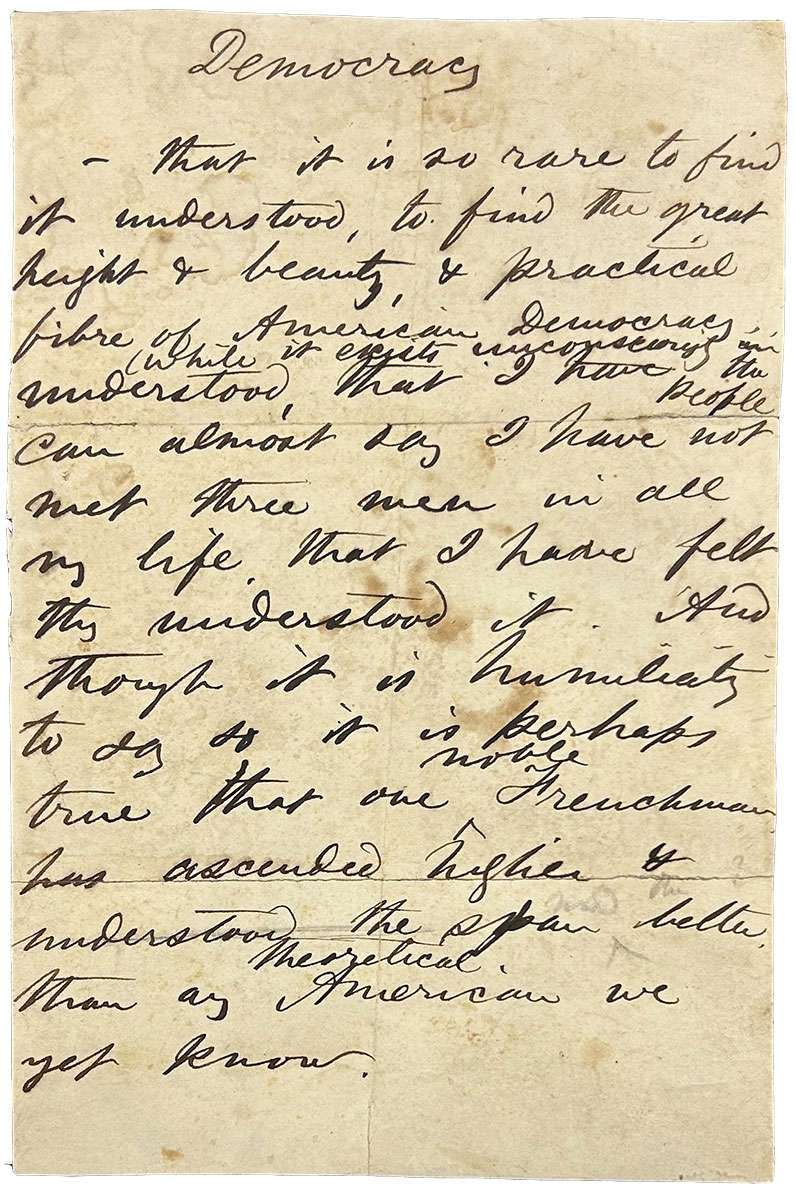 Democracy
- that it is so rare to find
it understood, to find the great
height & beauty, & practical
fibre of American Democracy
(while it exists unconsciously in
the people
understood, that I have
can almost say I have not
met three men in all
my life, that I have felt
they understood it. And
though it is humiliating
to say so it is perhaps
noble
true that one Frenchman
has ascended higher &
understood the span better,
theoretical
than any American we
yet know.